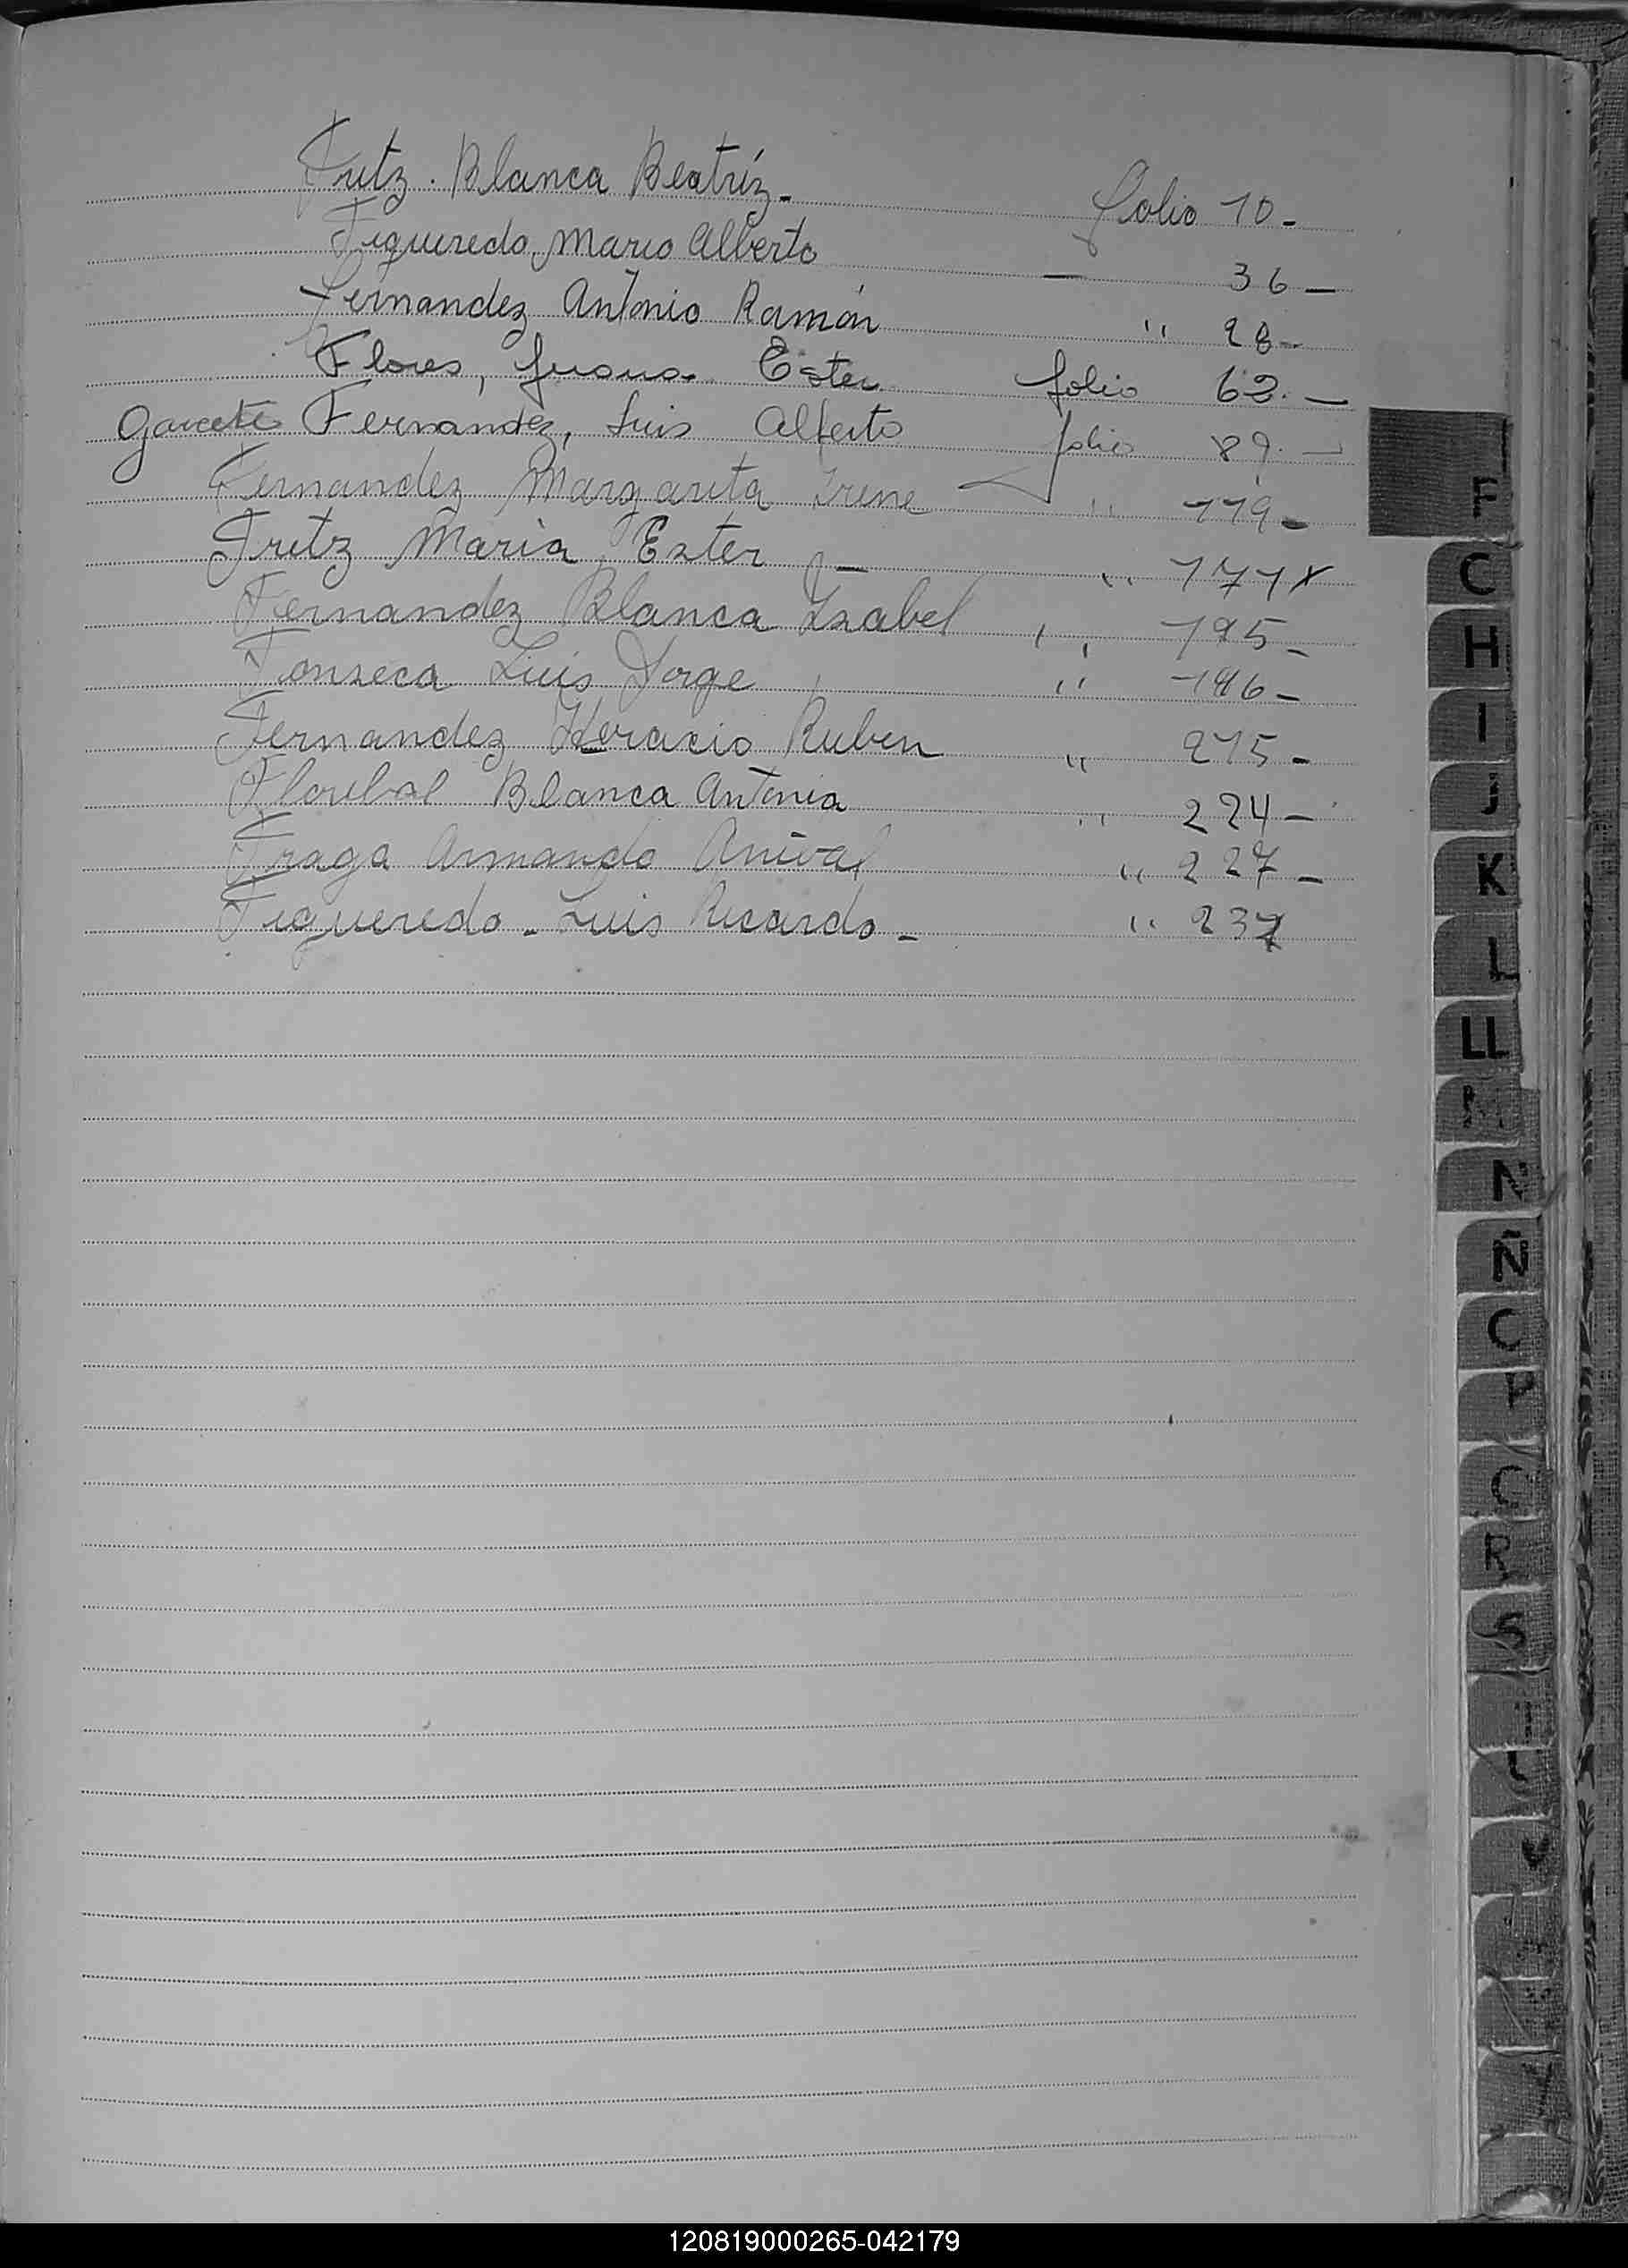 Fritz. Blanca Beatríz - folio 10 -
Figueredo, Mario Alberto — 36 —
Fernandez Antonio Ramón " 28 -
Flores, Juana Ester folio 62. —
Garcete Fernandez, Luis Alberto folio 89. —
Fernandez Margarita Irene " 119 -
Fritz Maria Ester - " 171 x
Fernandez Blanca Izabel " 195 -
Fonseca Luis Jorge " 196 -
Fernandez Horacio Ruben " 215 -
Floribal Blanca Antonia " 224 -
Fraga Armando Anival " 227 -
Figueredo - Luis Ricardo - " 237
F
G
H
I
J
K
L
LL
M
N
Ñ
O
P
Q
R
S
120819000265-042179